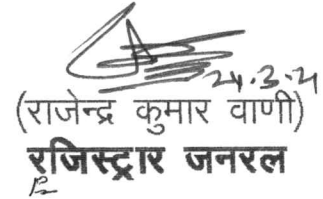 24.3.21
(राजेन्द्र कुमार वाणी)
रजिस्ट्रार जनरल